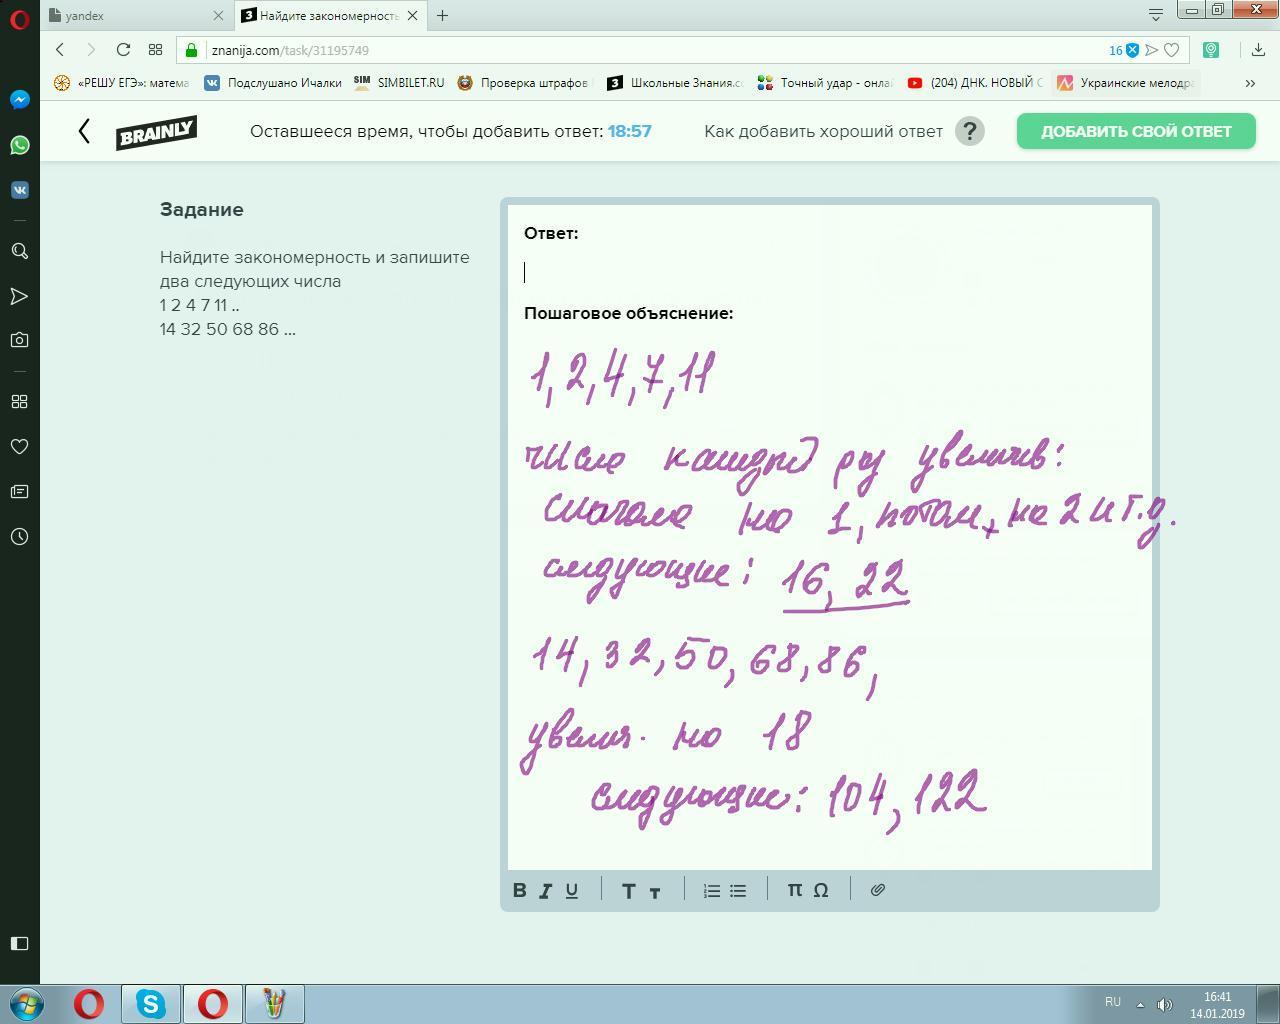 yandex
Найдите закономерность
znanija.com/task/31195749
16
«РЕШУ ЕГЭ»: матема
Подслушано Ичалки
SIM
SIMBILET.RU
Проверка штрафов
Школьные Знания.co
Точный удар - онла
(204) ДНК. НОВЫЙ С
Украинские мелодра
BRAINLY
Оставшееся время, чтобы добавить ответ: 18:57
Как добавить хороший ответ ?
ДОБАВИТЬ СВОЙ ОТВЕТ
Задание
Найдите закономерность и запишите
два следующих числа
1 2 4 7 11 ..
14 32 50 68 86 ...
Ответ:
Пошаговое объяснение:
1, 2, 4, 7, 11
числа каждый раз увелич:
сначала на 1, потом на 2 и т.д.
следующие: 16, 22
14, 32, 50, 68, 86,
увелич. на 18
следующие: 104, 122
B I U T т π Ω
RU
16:41
14.01.2019